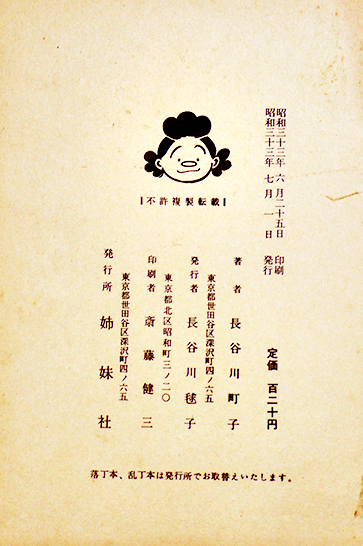 昭和三十三年 六月二十五日 印刷
昭和三十三年 七月 一日 発行
不許複製転載
定価 百二十円
著者 長谷川町子
東京都世田谷区深沢町四ノ六五
発行者 長谷川毬子
東京都北区昭和町三ノ二〇
印刷者 斎藤健三
東京都世田谷区深沢町四ノ六五
発行所 姉妹社
落丁本、乱丁本は発行所でお取替えいたします。